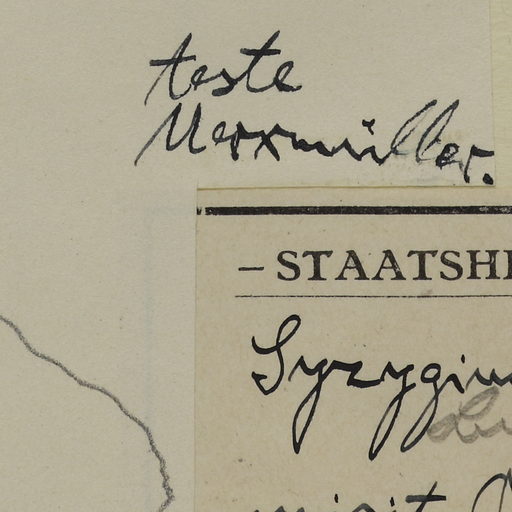 teste
Merxmüller.
– STAATSH
Syzygiu
misit